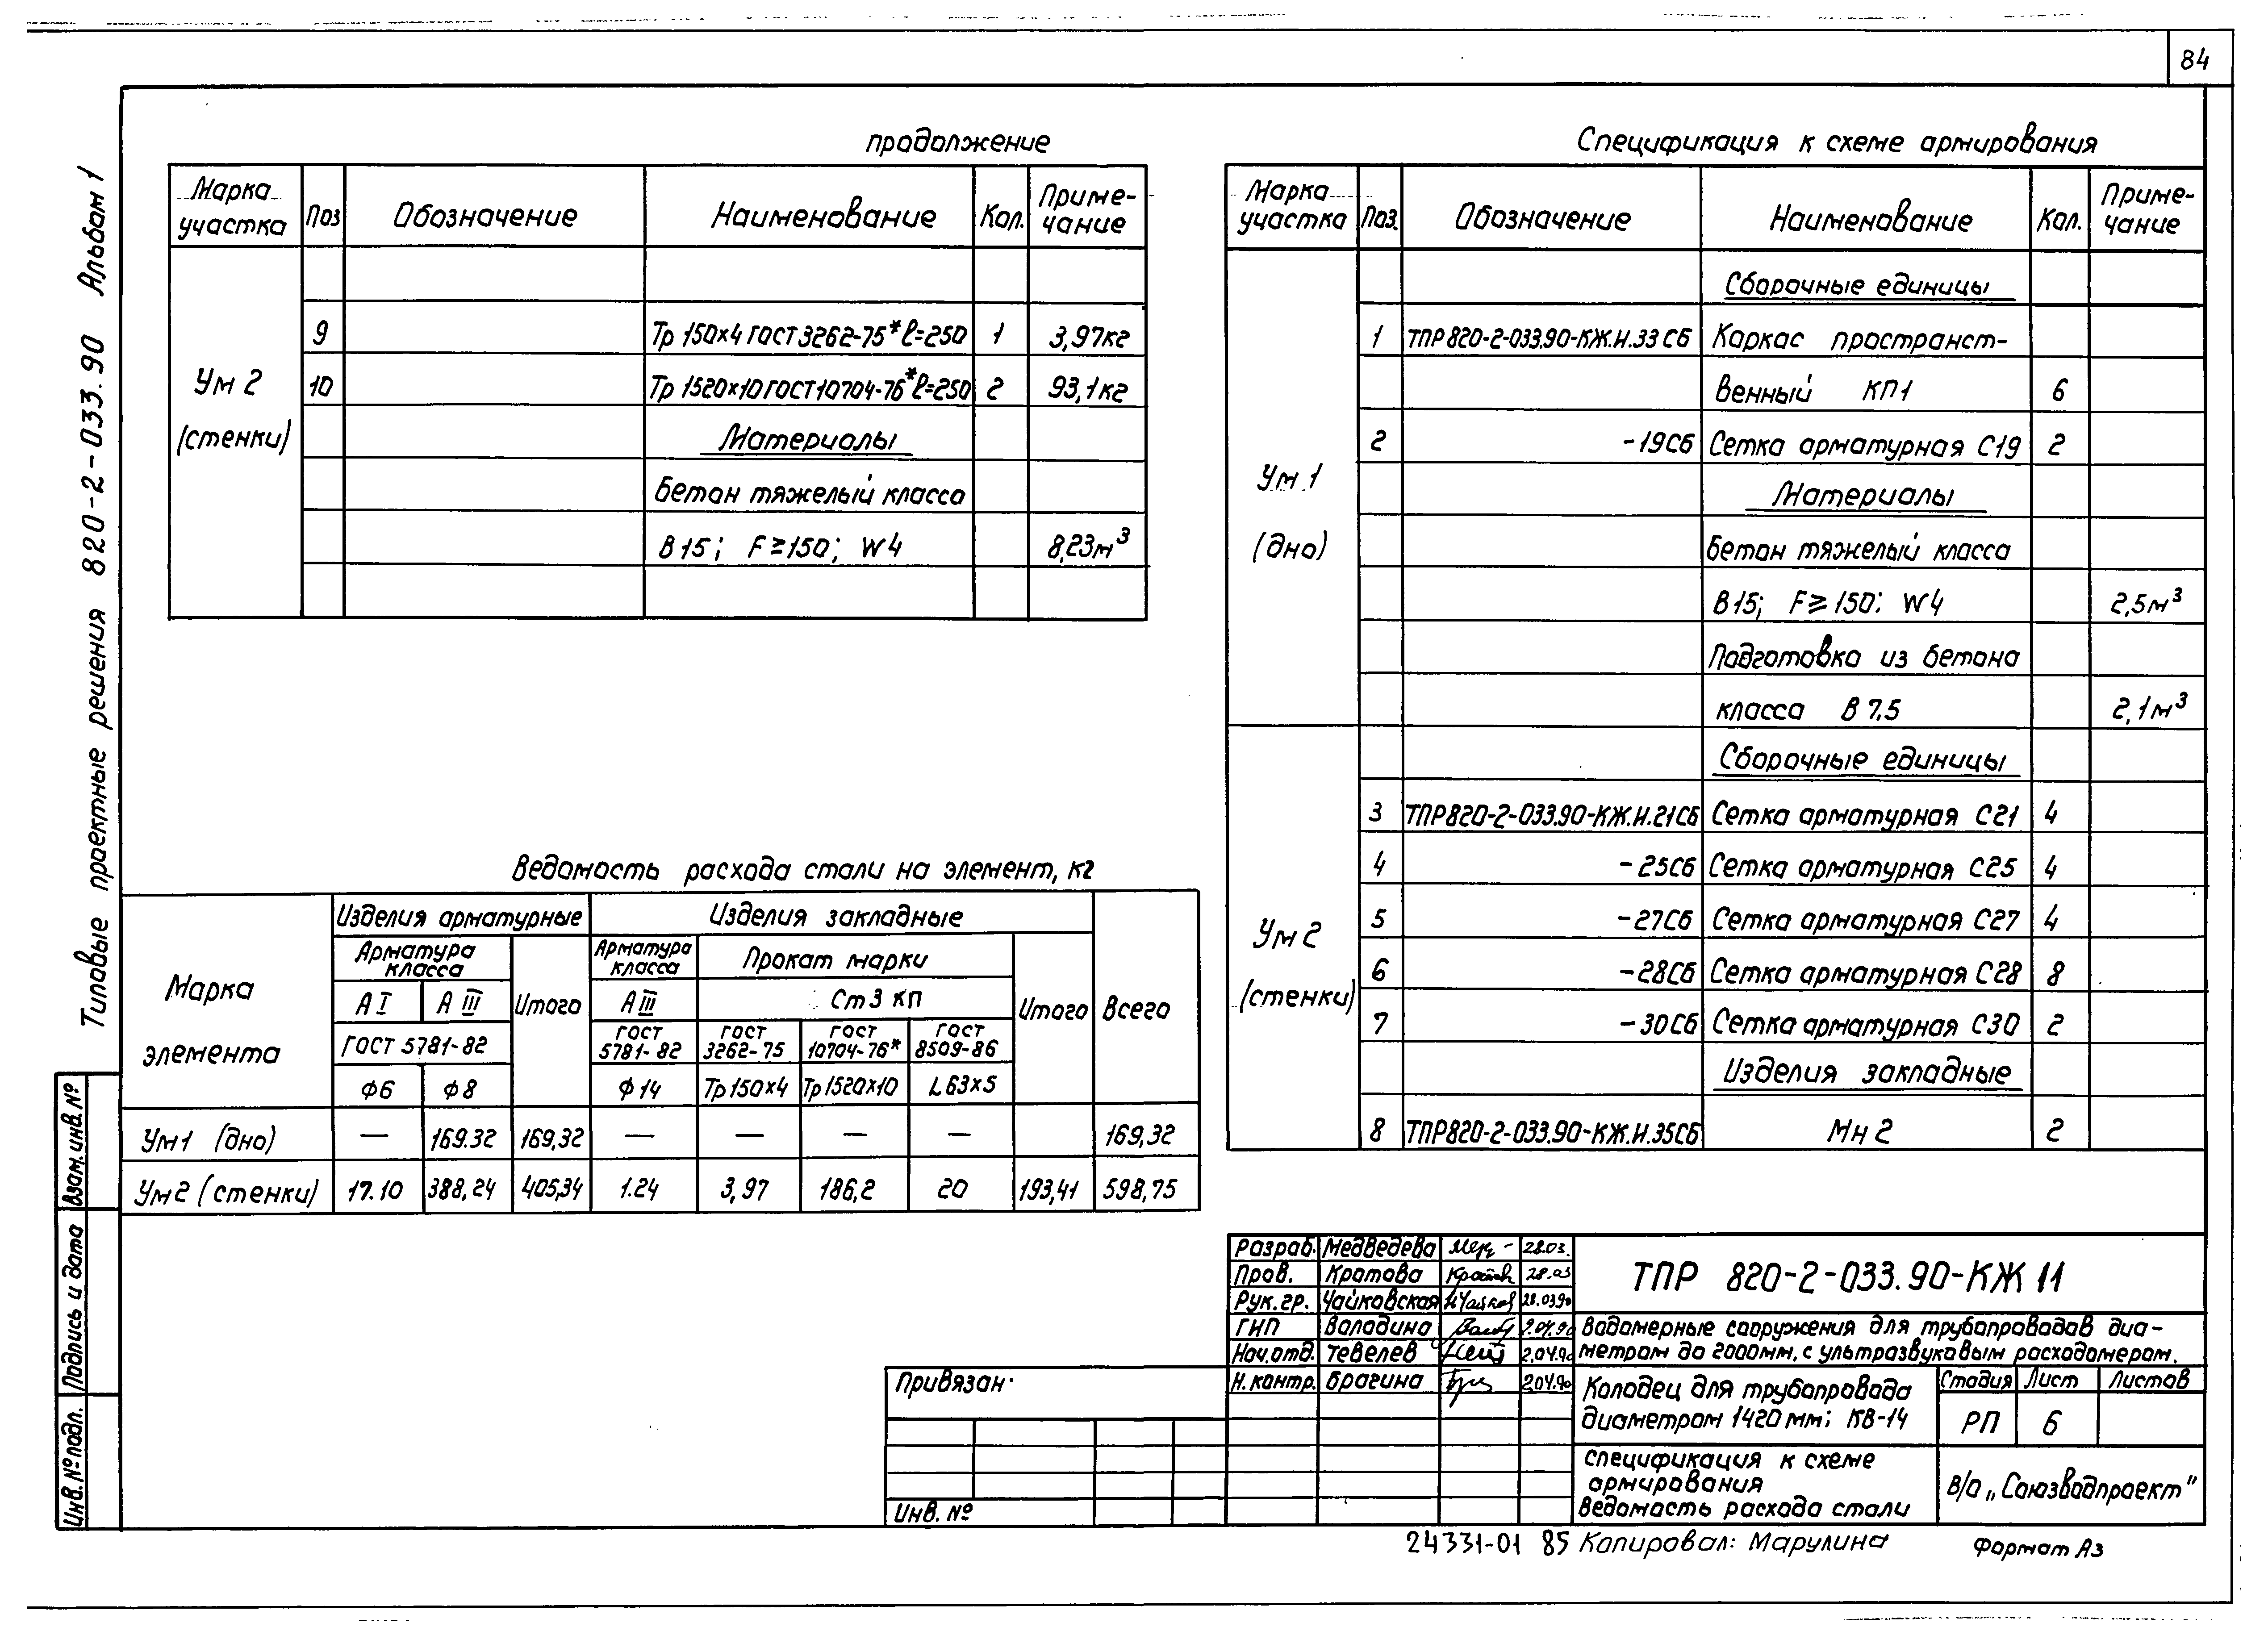 84
Типовые проектные решения 820-2-033.90 Альбом 1
продолжение
Марка участка | Поз | Обозначение | Наименование | Кол. | Приме-чание
Ум 2 (стенки)
9 | Тр 150х4 ГОСТ 3262-75* ℓ=250 | 1 | 3,97кг
10 | Тр 1520х10 ГОСТ 10704-76* ℓ=250 | 2 | 93,1кг
Материалы
Бетон тяжелый класса
В 15; F≥150; W4 | 8,23м³
Спецификация к схеме армирования
Марка участка | Поз. | Обозначение | Наименование | Кол. | Приме-чание
Ум 1 (дно)
Сборочные единицы
1 | ТПР 820-2-033.90-КЖ.И.33 СБ | Каркас пространст-
венный КП1 | 6
2 | -19СБ | Сетка арматурная С19 | 2
Материалы
Бетон тяжелый класса
В 15; F≥150: W4 | 2,5м³
Подготовка из бетона
класса В 7,5 | 2,1м³
Ум 2 (стенки)
Сборочные единицы
3 | ТПР820-2-033.90-КЖ.И.21СБ | Сетка арматурная С21 | 4
4 | -25СБ | Сетка арматурная С25 | 4
5 | -27СБ | Сетка арматурная С27 | 4
6 | -28СБ | Сетка арматурная С28 | 8
7 | -30СБ | Сетка арматурная С30 | 2
Изделия закладные
8 | ТПР820-2-033.90-КЖ.И.35СБ | Мн 2 | 2
Ведомость расхода стали на элемент, кг
Марка элемента | Изделия арматурные | Изделия закладные | Всего
Арматура класса | Итого | Арматура класса | Прокат марки | Итого
А I | А III | А III | Ст 3 кп
ГОСТ 5781-82 | ГОСТ 5781-82 | ГОСТ 3262-75 | ГОСТ 10704-76* | ГОСТ 8509-86
Ф6 | Ф8 | Ф 14 | Тр 150х4 | Тр 1520х10 | L 63х5
Ум1 (дно) | — | 169.32 | 169,32 | — | — | — | — | 169,32
Ум2 (стенки) | 17.10 | 388,24 | 405,34 | 1.24 | 3,97 | 186,2 | 20 | 193,41 | 598,75
Взам. инв. №
Подпись и дата
Инв. № подл.
Привязан·
Инв. №
Разраб. Медведева 28.03.
Пров. Кротова 28.03
Рук. гр. Чайковская 28.03.90
ГИП Володина 2.04.90
Нач. отд. Тевелев 2.04.90
Н. контр. Брагина 2.04.90
ТПР 820-2-033.90-КЖ 11
Водомерные сооружения для трубопроводов диа-
метром до 2000мм, с ультразвуковым расходомером.
Колодец для трубопровода
диаметром 1420 мм; КВ-14
Стадия | Лист | Листов
РП | 6
Спецификация к схеме
армирования
Ведомость расхода стали
В/О „Союзводпроект"
24331-01 85 Копировал: Марулина
Формат А3